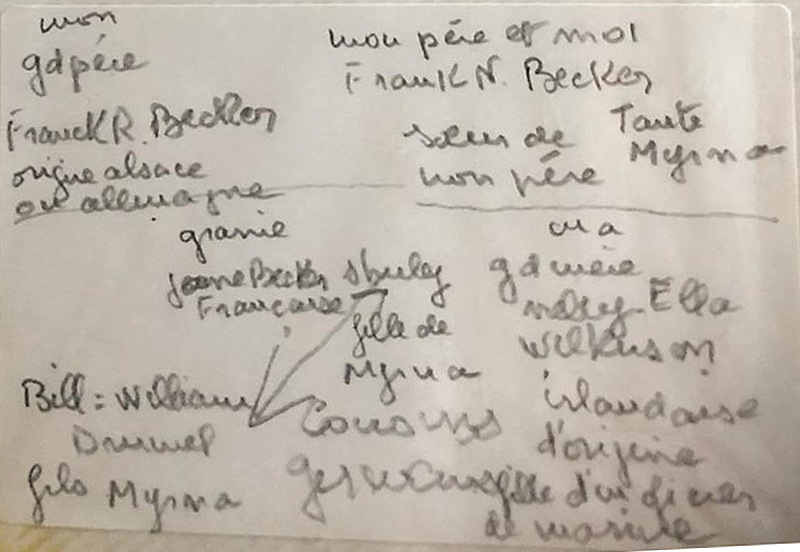 mon
gd père
Franck R. Becker
origine alsace
ou allemagne
mon père et moi
Frank N. Becker
soeur de Tante
mon père Myrna
granie
Jeanne Becker
Française
Shirley
fille de
Myrna
ma
gd mère
Mary Ella
Wilkinson
irlandaise
d'origine
fille d'un
de marine
Bill = William
fils Myrna
Cousins